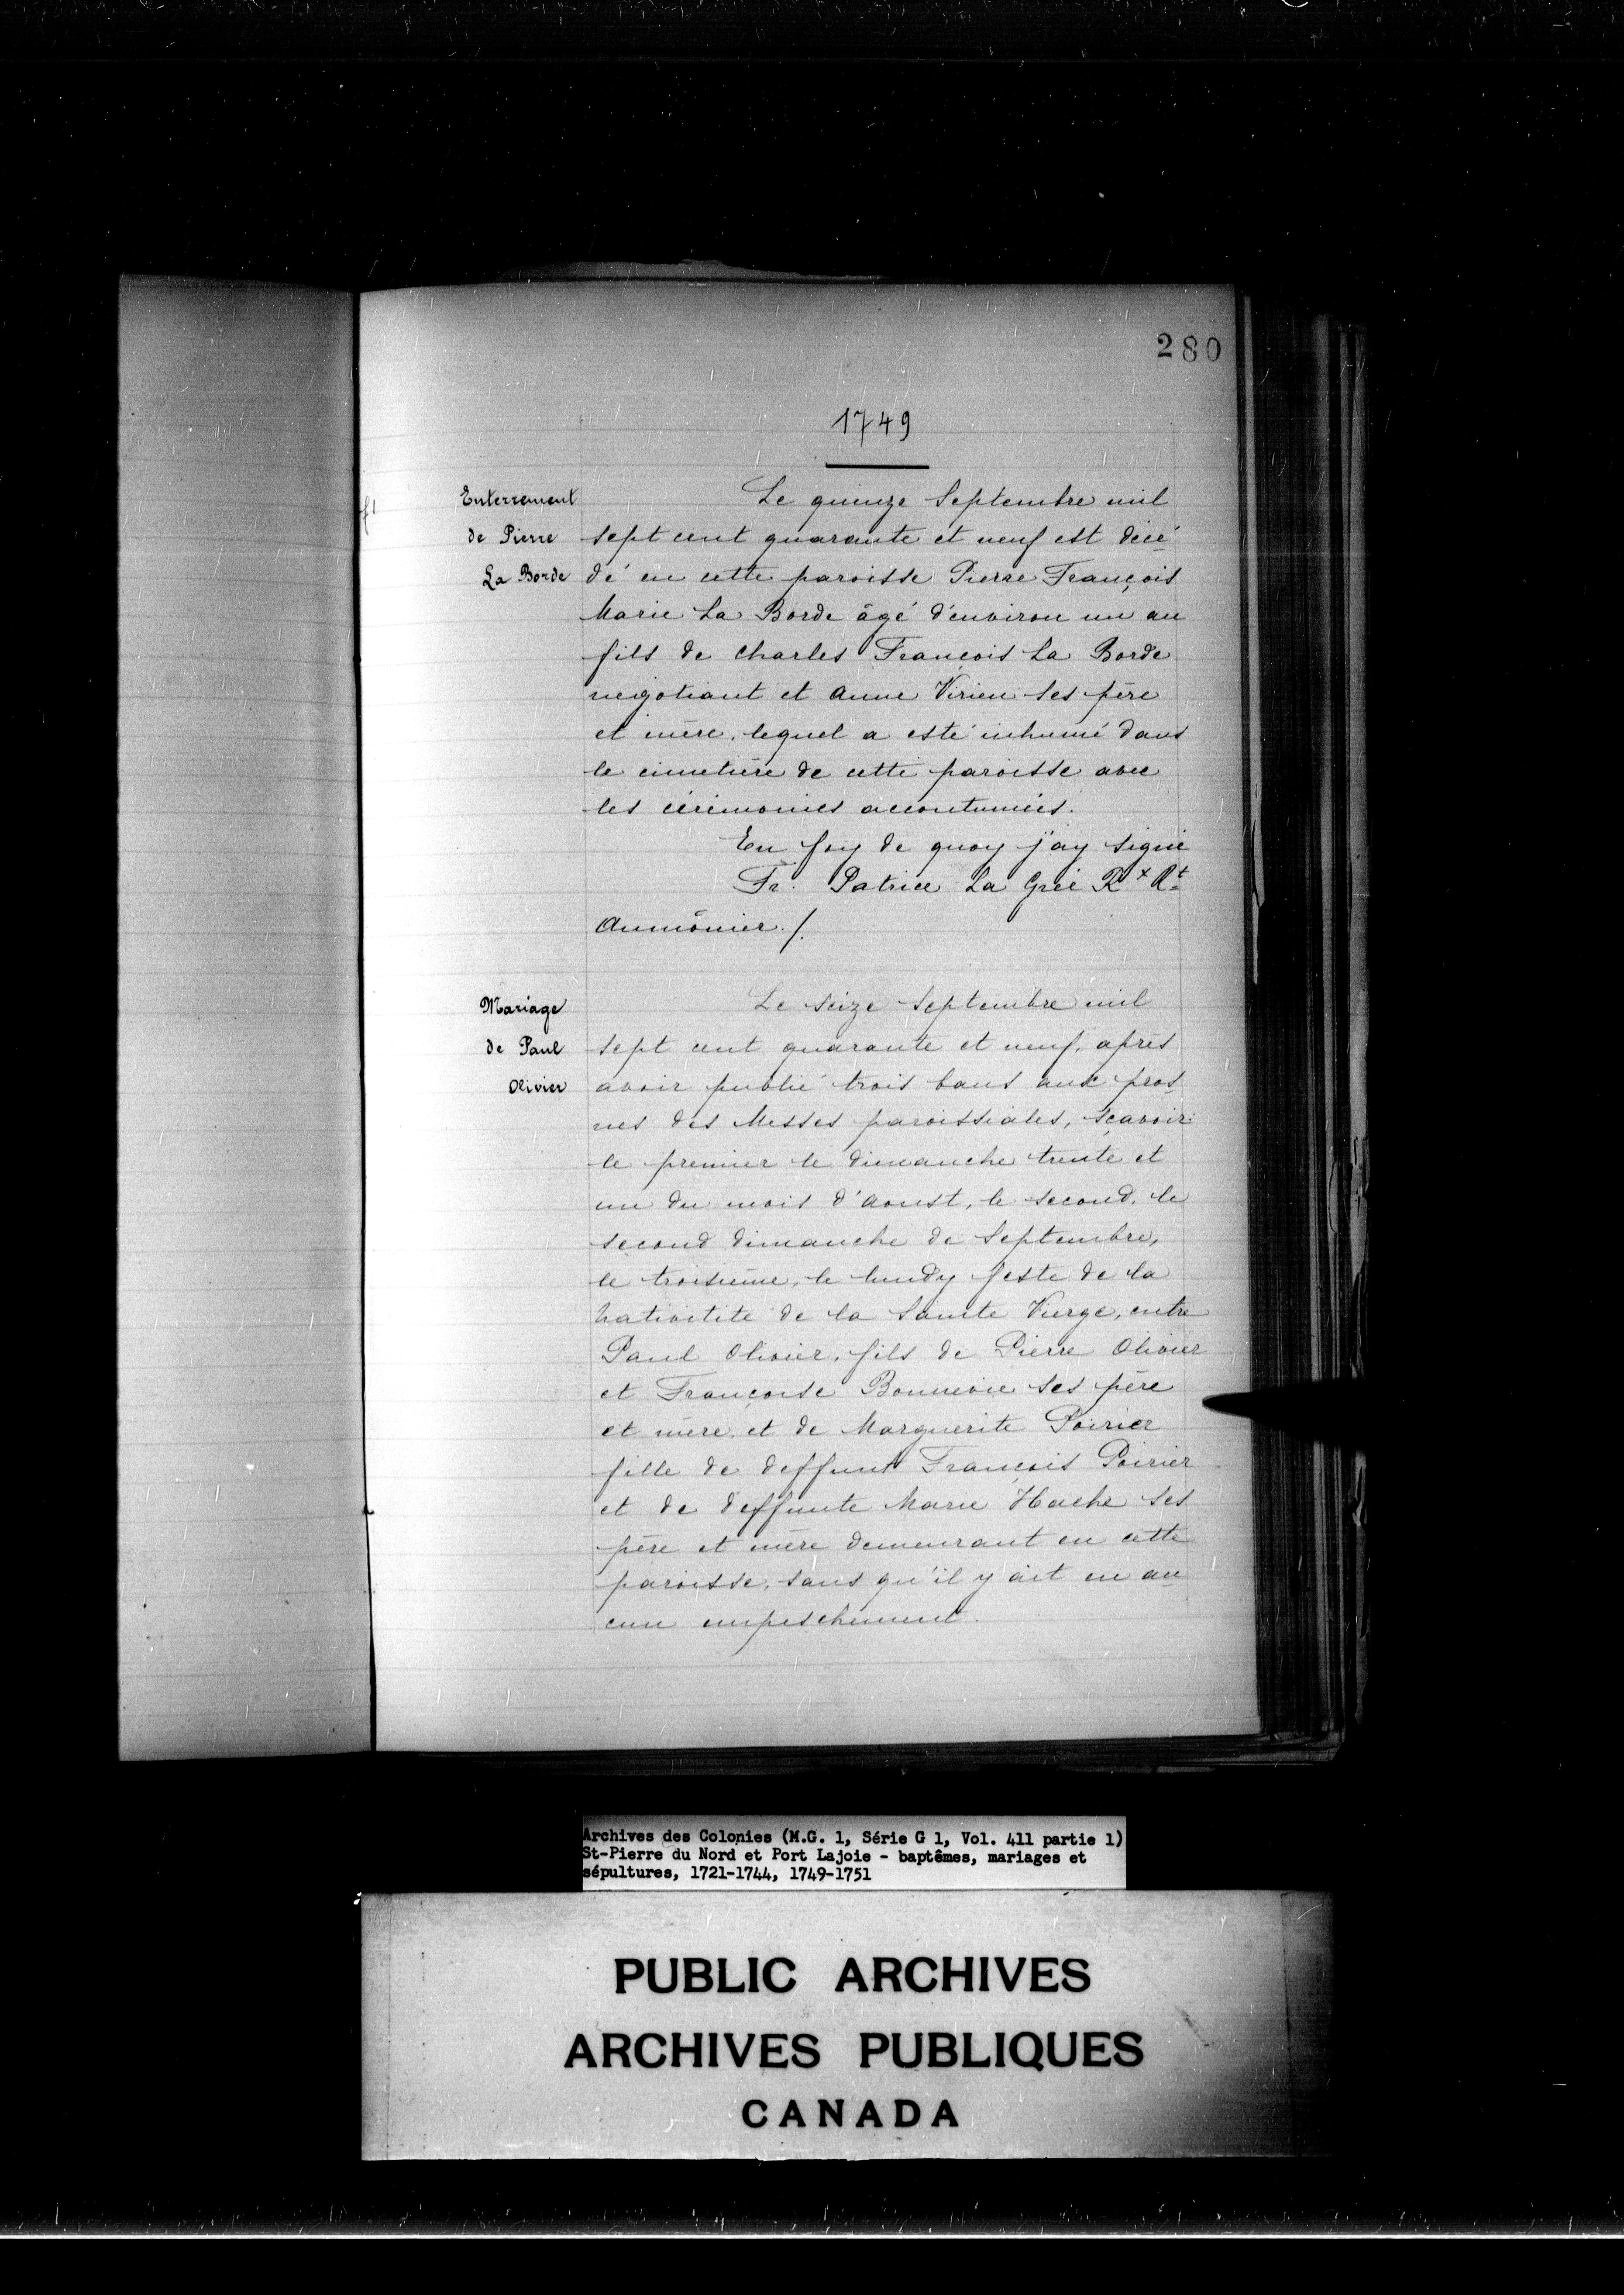 280
1749
Enterrement
de Pierre
La Borde
Le quinze Septembre mil
sept cent quarante et neuf est décé
dé en cette paroisse Pierre François
Marie La Borde âgé d'environ un an
fils de Charles François La Borde
negotiant et Anne Virien ses père
et mère, lequel a esté inhumé dans
le cimetière de cette paroisse avec
les cérémonies accoutumées.
En foy de quoy j'ay signé
Fr. Patrice La Grée Rx Rt
Aumônier ./.
Mariage
de Paul
Olivier
Le seize Septembre mil
sept cent quarante et neuf, après
avoir publié trois bans aux pros
nes des Messes paroissiales, sçavoir
le premier le dimanche trente et
un du mois d'Aoust, le second, le
second dimanche de Septembre,
le troisième, le lundy feste de la
nativitité de la Sainte Vierge, entre
Paul Olivier, fils de Pierre Olivier
et Françoise Bonnevie ses père
et mère, et de Marguerite Poirier
fille de deffunt François Poirier
et de deffunte Marie Hache ses
père et mère demeurant en cette
paroisse, sans qu'il y ait eu au
cun empeschement.
Archives des Colonies (M.G. 1, Série G 1, Vol. 411 partie 1)
St-Pierre du Nord et Port Lajoie - baptêmes, mariages et
sépultures, 1721-1744, 1749-1751
PUBLIC ARCHIVES
ARCHIVES PUBLIQUES
CANADA